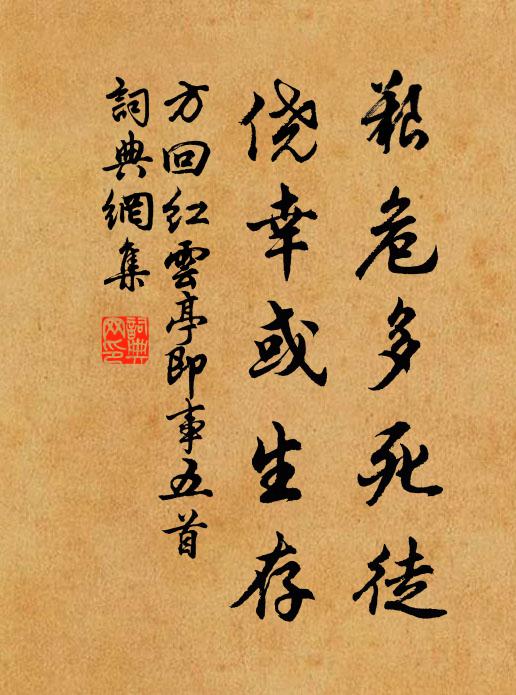 艱危多死徒
侥幸或生存
方回红雲亭即事五首
詞典網集
詞典
网印